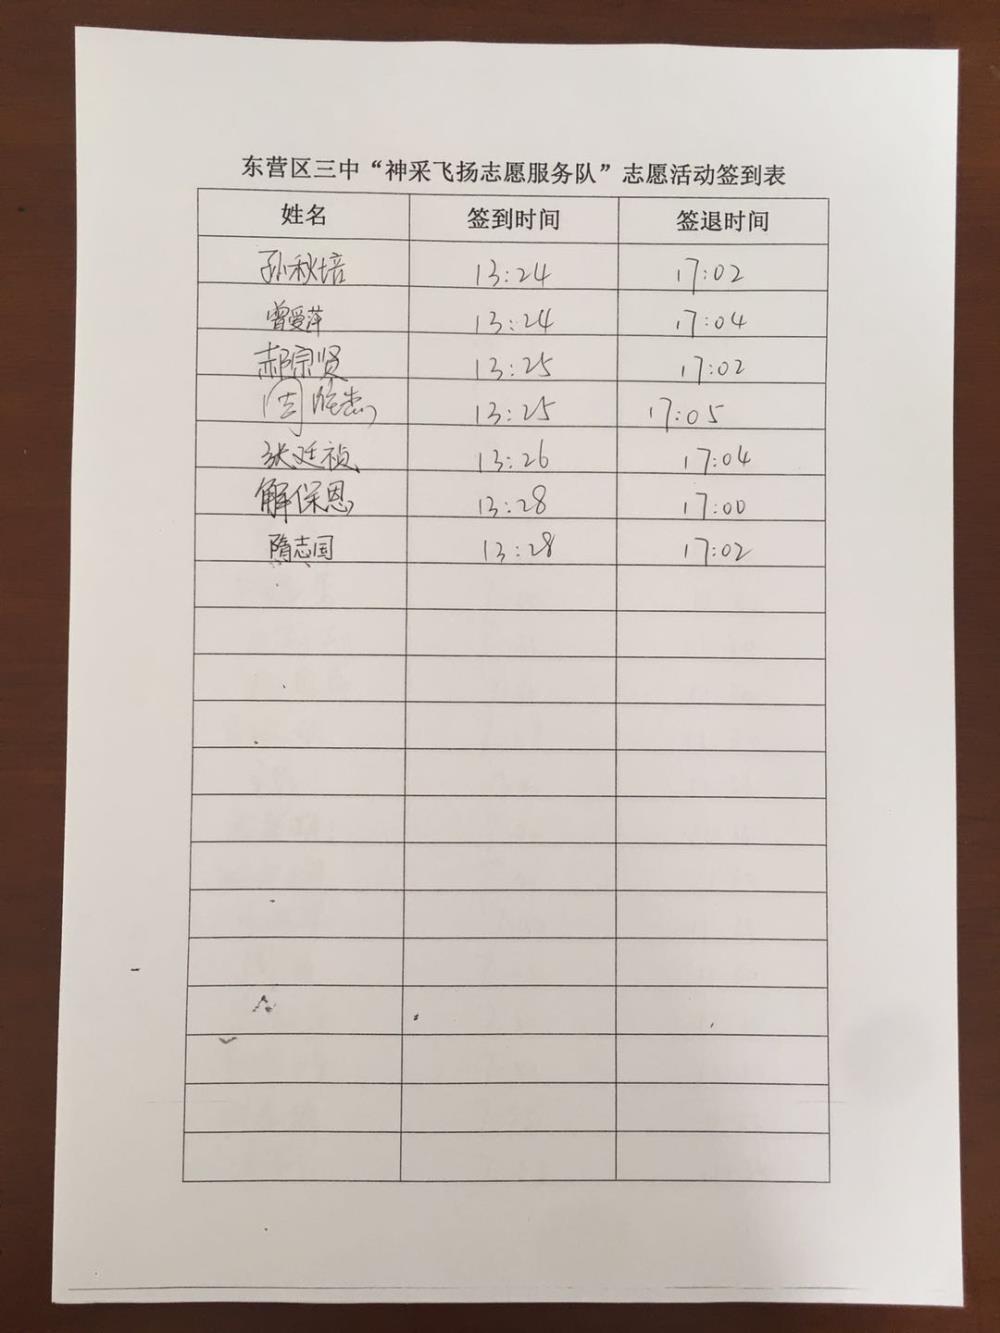 东营区三中“神采飞扬志愿服务队”志愿活动签到表
姓名 签到时间 签退时间
孙秋培 13:24 17:02
曾爱萍 13:24 17:04
郝宗贤 13:25 17:02
周 杰 13:25 17:05
张廷祯 13:26 17:04
解保恩 13:28 17:00
隋志国 13:28 17:02